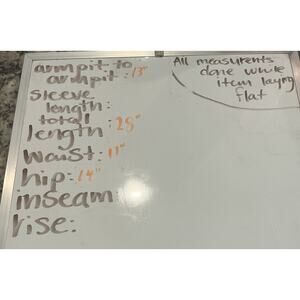 armpit to
armpit: 13"
sleeve
length:
total
length: 28"
waist: 11"
hip: 14"
inseam:
rise:
All measurements
done while
item laying
flat